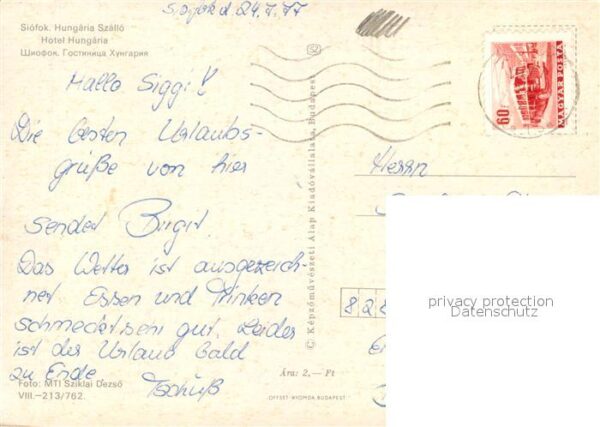 Siófok d. 24.7.77
Siófok. Hungária Szálló
Hotel Hungária
Шиофок. Гостиница Хунгария
Hallo Siggi!
Die besten Urlaubs-
grüße von hier
sendet Birgit.
Das Wetter ist ausgezeich-
net Essen und Trinken
schmeckt sehr gut. Leider
ist der Urlaub bald
zu Ende
Tschüß
Foto: MTI Sziklai Dezső
VIII.—213/762.
© Képzőművészeti Alap Kiadóvállalata, Budapest
Ára: 2,— Ft
OFFSET-NYOMDA BUDAPEST
60
MAGYAR POSTA
Herrn
828
privacy protection
Datenschutz